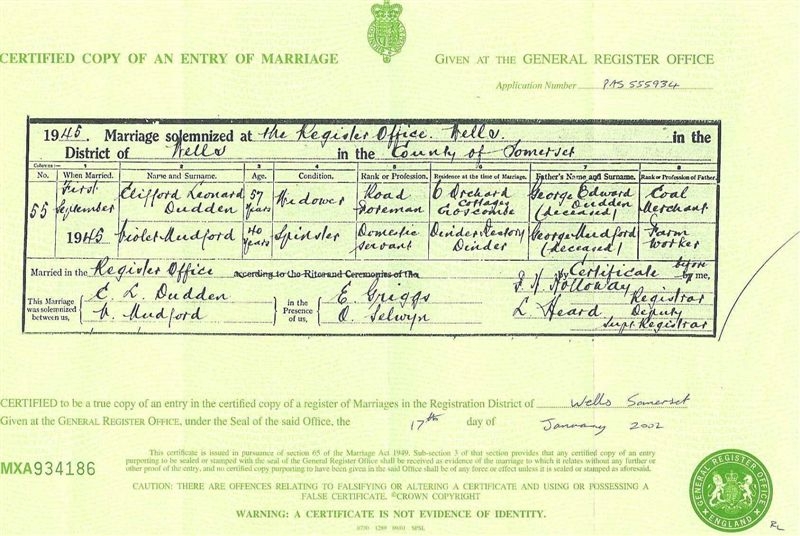 CERTIFIED COPY OF AN ENTRY OF MARRIAGE
GIVEN AT THE GENERAL REGISTER OFFICE
Application Number PAS 555934
1945. Marriage solemnized at the Register Office. Wells. in the
District of Wells in the County of Somerset
Columns:— 1 2 3 4 5 6 7 8
No. When Married. Name and Surname. Age. Condition. Rank or Profession. Residence at the time of Marriage. Father's Name and Surname. Rank or Profession of Father.
55 First September 1945 Clifford Leonard Dudden 57 years Widower Road Foreman 6 Orchard Cottages Croscombe George Edward Dudden (deceased) Coal Merchant
Violet Mudford 40 years Spinster Domestic servant Dinder Rectory Dinder George Mudford (deceased) Farm Worker
Married in the Register Office according to the Rites and Ceremonies of the by Certificate before by me,
This Marriage was solemnized between us, C. L. Dudden
V. Mudford
in the Presence of us, E. Griggs
O. Selwyn
F. H. Holloway Registrar
L. Heard Deputy Supt Registrar
CERTIFIED to be a true copy of an entry in the certified copy of a register of Marriages in the Registration District of Wells Somerset
Given at the GENERAL REGISTER OFFICE, under the Seal of the said Office, the 17th day of January 2002
MXA934186
This certificate is issued in pursuance of section 65 of the Marriage Act 1949. Sub-section 3 of that section provides that any certified copy of an entry
purporting to be sealed or stamped with the seal of the General Register Office shall be received as evidence of the marriage to which it relates without any further or
other proof of the entry, and no certified copy purporting to have been given in the said Office shall be of any force or effect unless it is sealed or stamped as aforesaid.
CAUTION: THERE ARE OFFENCES RELATING TO FALSIFYING OR ALTERING A CERTIFICATE AND USING OR POSSESSING A
FALSE CERTIFICATE. ©CROWN COPYRIGHT
WARNING: A CERTIFICATE IS NOT EVIDENCE OF IDENTITY.
SPSL
GENERAL REGISTER OFFICE
ENGLAND
RL